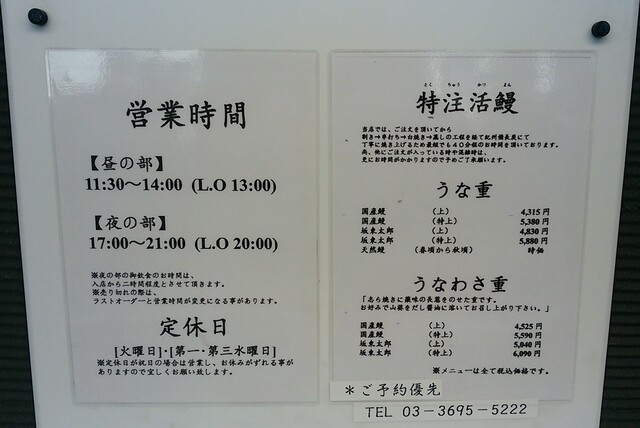 営業時間
【昼の部】
11:30〜14:00 (L.O 13:00)
【夜の部】
17:00〜21:00 (L.O 20:00)
※夜の部の御飲食のお時間は、
入店から二時間程度とさせて頂きます。
※売り切れの際は、
ラストオーダーと営業時間が変更になる事があります。
定休日
[火曜日]・[第一・第三水曜日]
※定休日が祝日の場合は営業し、お休みがずれる事が
ありますので宜しくお願い致します。
とく ちゅう かつ まん
特注活鰻
当店では、ご注文を頂いてから
割き→串打ち→白焼き→蒸しの工程を経て紀州備長炭にて
丁寧に焼き上げるため最短でも40分程のお時間を頂いております。
尚、他にご注文が入っている時や混雑時は、
更にお時間がかかりますので予めご了承願います。
うな重
国産鰻 (上) 4,315円
国産鰻 (特上) 5,380円
坂東太郎 (上) 4,830円
坂東太郎 (特上) 5,880円
天然鰻 (春頃から秋頃) 時価
うなわさ重
「志ら焼きに薬味の長葱をのせた重です。
お好みで山葵をだし醤油に溶いてお召し上がり下さい。」
国産鰻 (上) 4,525円
国産鰻 (特上) 5,590円
坂東太郎 (上) 5,040円
坂東太郎 (特上) 6,090円
※メニューは全て税込価格です。
*ご予約優先
TEL 03-3695-5222